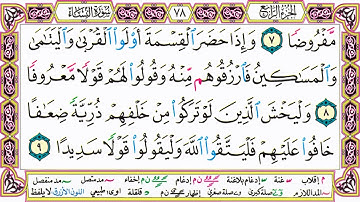 الجزء الرابع ٧٨ سورة النساء
مَّفْرُوضًا ٧ وَإِذَا حَضَرَ ٱلْقِسْمَةَ أُوْلُوا۟ ٱلْقُرْبَىٰ وَٱلْيَتَـٰمَىٰ
وَٱلْمَسَـٰكِينُ فَٱرْزُقُوهُم مِّنْهُ وَقُولُوا۟ لَهُمْ قَوْلًا مَّعْرُوفًا
٨ وَلْيَخْشَ ٱلَّذِينَ لَوْ تَرَكُوا۟ مِنْ خَلْفِهِمْ ذُرِّيَّةً ضِعَـٰفًا
خَافُوا۟ عَلَيْهِمْ فَلْيَتَّقُوا۟ ٱللَّهَ وَلْيَقُولُوا۟ قَوْلًا سَدِيدًا ٩